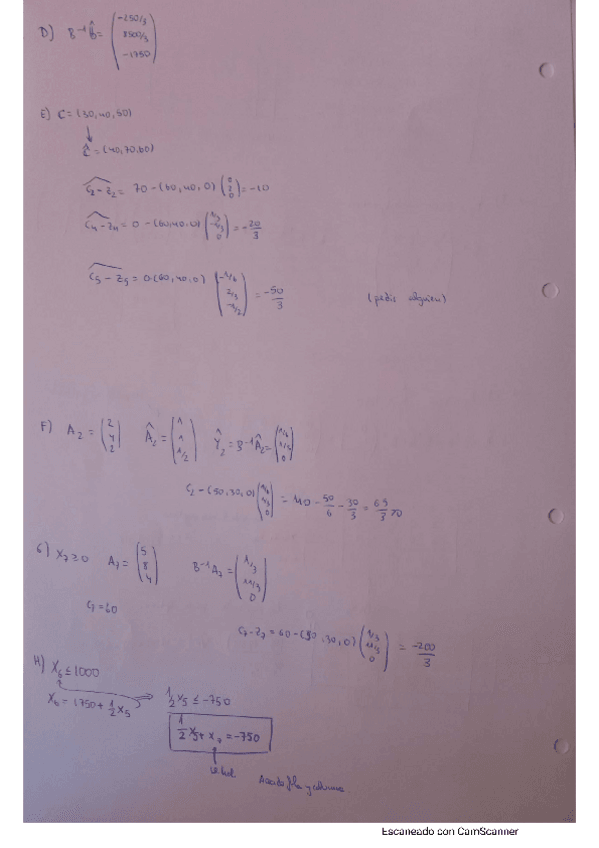 D) B⁻¹ b̂ = (-250/3
8500/3
-1750)
E) C = (30, 40, 50)
Ĉ = (40, 70, 60)
C₂-Z₂ = 70 - (60, 40, 0) (0 2 0) = -10
C₄-Z₄ = 0 - (60, 40, 0) ( 0) = -20/3
C₅-Z₅ = 0 (60, 40, 0) (-1/6 2/3 -1/2) = -50/3
(pedís alguien)
F) A₂ = (2 4 2) Â₂ = (1 1 1/2) Ŷ₂ = B⁻¹Â₂ = (1/6 1/3 0)
C₂ - (50, 30, 0) (1/6 1/3 0) = 40 - 50/6 - 30/3 = 65/3 >0
G) X₇ ≥ 0 A₇ = (5 8 4) B⁻¹A₇ = (1/3 11/3 0)
C₇ = 60
C₇-Z₇ = 60 - (50, 30, 0) (1/3 11/3 0) = -200/3
H) X₆ ≤ 1000
X₆ = 1750 + 1/2 X₅ ⇒ 1/2 X₅ ≤ -750
1/2 X₅ + X₇ = -750
Añado fila y columna
Escaneado con CamScanner